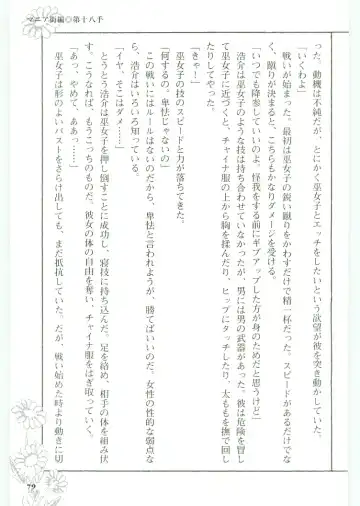 マニア街編◎第十八手
った。動機は不純だが、とにかく巫女子とエッチをしたいという欲望が彼を突き動かしていた。
「いくわよ」
戦いが始まった。最初は巫女子の鋭い蹴りをかわすだけで精一杯だった。スピードがあるだけでな
く、蹴りが決まると、こちらもかなりダメージを受ける。
「いつでも降参していいのよ。怪我をする前にギブアップした方が身のためだと思うけど」
浩介は巫女子のような技は持ち合わせていなかったが、男には男の武器があった。彼は危険を冒し
て巫女子に近づくと、チャイナ服の上から胸を揉んだり、ヒップにタッチしたり、太ももを撫で回し
たりしてやった。
「きゃ！」
巫女子の技のスピードと力が落ちてきた。
「何するの、卑怯じゃないの」
この戦いにはルールはないのだから、卑怯と言われようが、勝てばいいのだ。女性の性的な弱点な
ら、浩介はいろいろ知っている。
「イヤ、そこはダメ……」
とうとう浩介は巫女子を押し倒すことに成功し、寝技に持ち込んだ。足を絡め、相手の体を組み伏
す。こうなれば、もうこっちのものだ。彼女の体の自由を奪い、チャイナ服をはぎ取っていく。
「あっ、やめて、ああっ……」
巫女子は形のよいバストをさらけ出しても、まだ抵抗していた。だが、戦い始めた時より動きに切
79